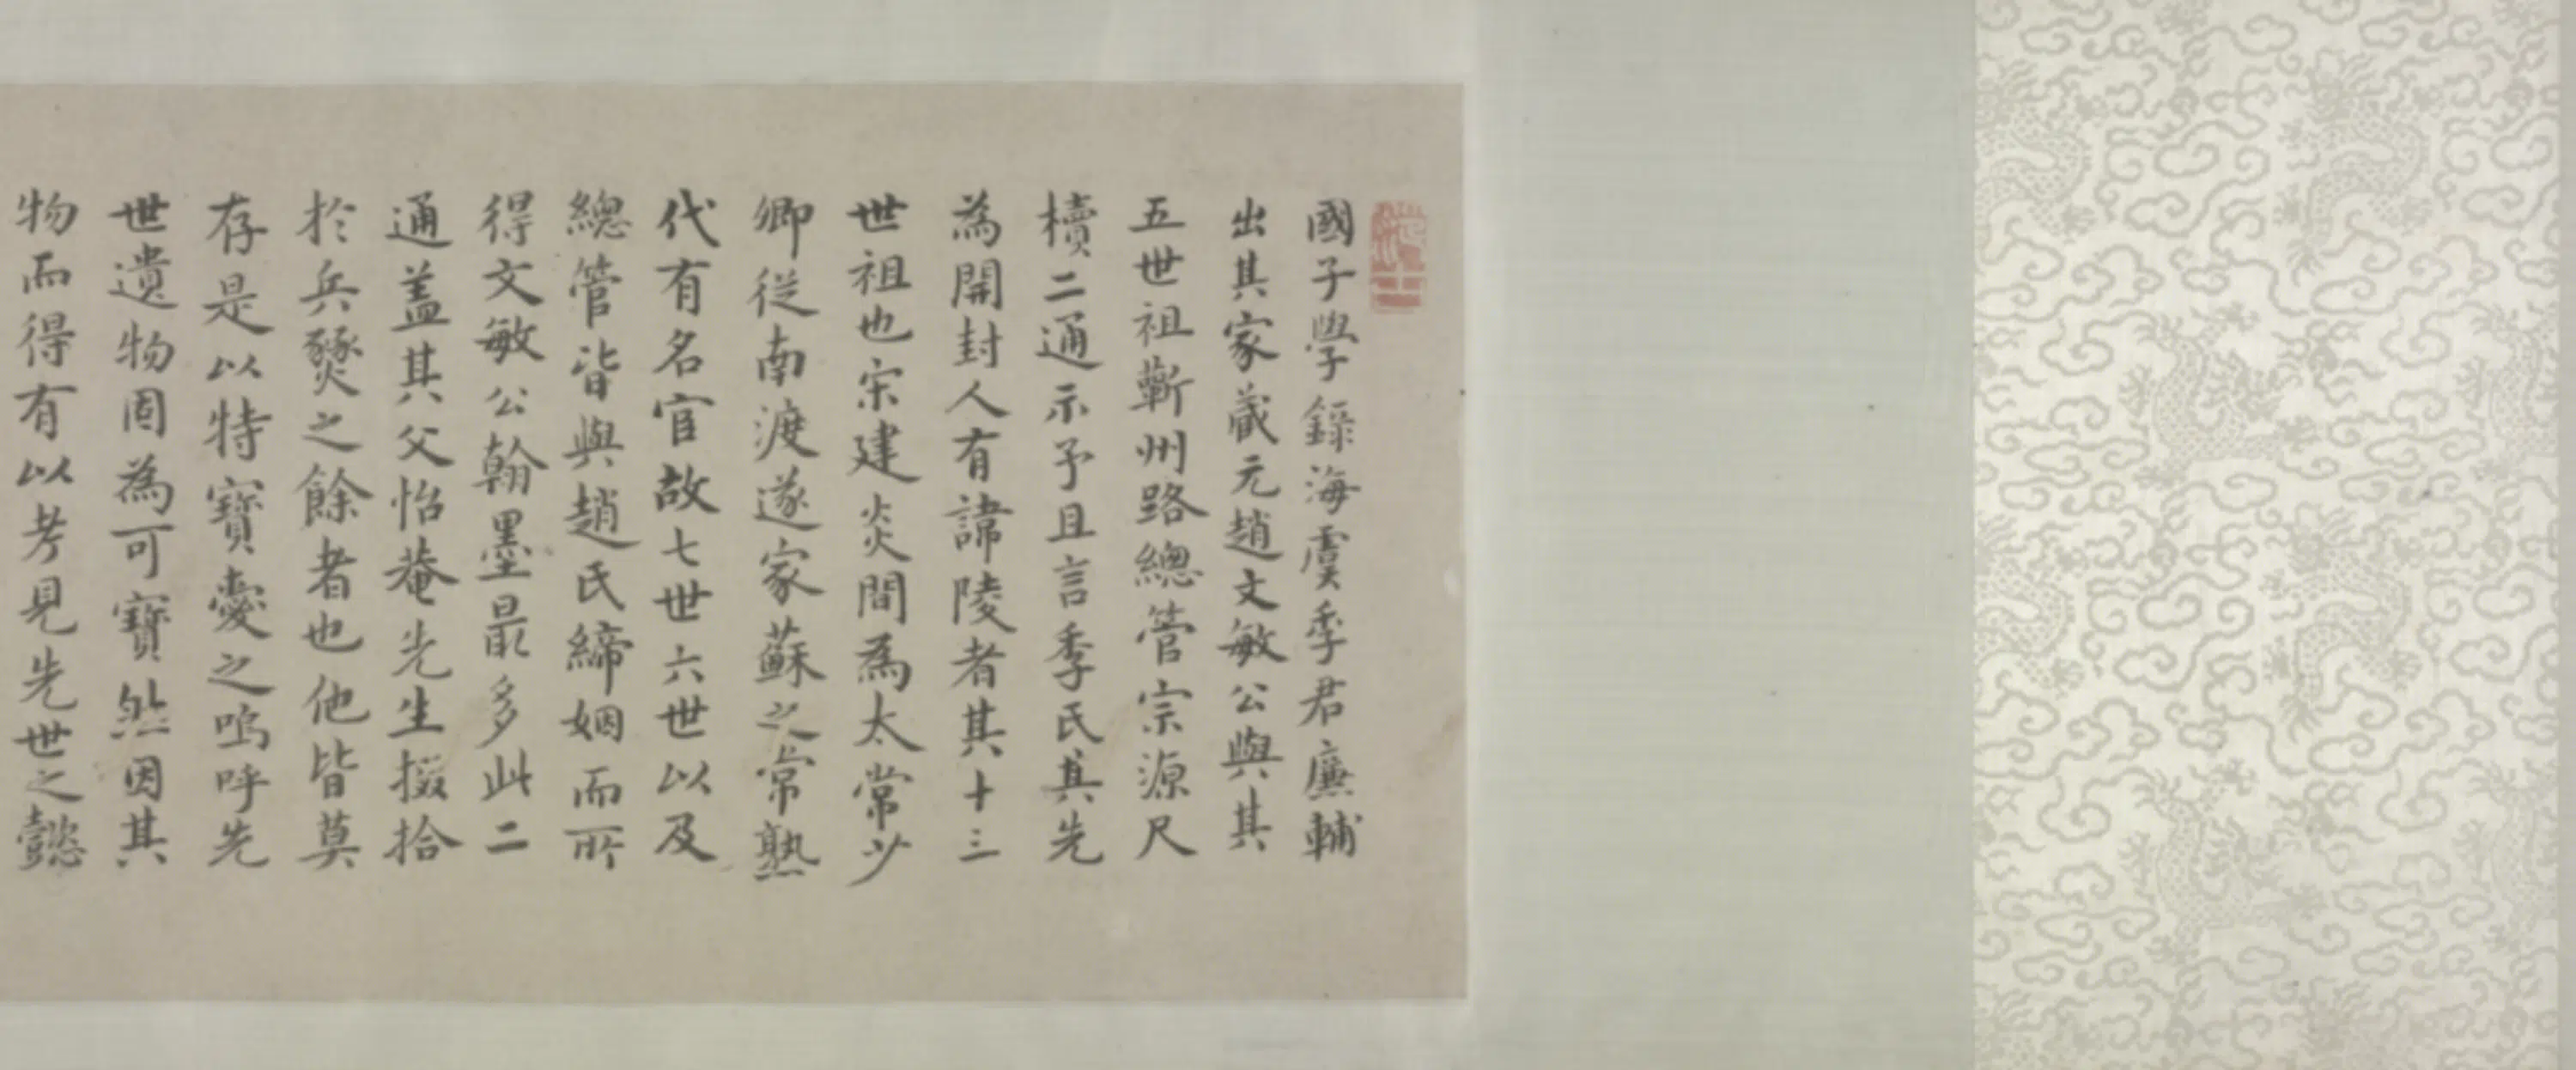 國子學錄海虞季君廉輔
出其家藏元趙文敏公與其
五世祖蘄州路總管宗源尺
牘二通示予且言季氏其先
為開封人有諱陵者其十三
世祖也宋建炎間為太常少
卿從南渡遂家蘇之常熟
代有名官故七世六世以及
總管皆與趙氏締姻而所
得文敏公翰墨最多此二
通蓋其父怡菴先生掇拾
於兵燹之餘者也他皆莫
存是以特寶愛之嗚呼先
世遺物固為可寶然因其
物而得有以考見先世之懿